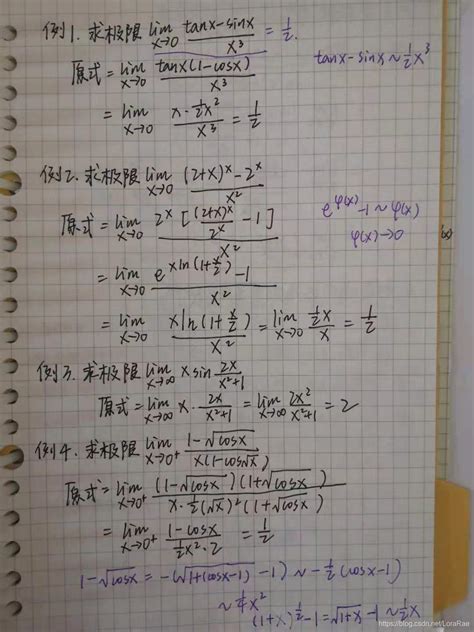 例1. 求极限 lim_{x→0} (tanx-sinx)/x³ = 1/2.
tanx-sinx ~ 1/2 x³
原式 = lim_{x→0} tanx(1-cosx)/x³
= lim_{x→0} (x·1/2 x²)/x³ = 1/2
例2. 求极限 lim_{x→0} ((2+x)^x - 2^x)/x²
原式 = lim_{x→0} 2^x [(2+x)^x/2^x - 1]/x²
e^{φ(x)} - 1 ~ φ(x)
φ(x)→0
(x)
= lim_{x→0} (e^{xln(1+x/2)} - 1)/x²
= lim_{x→0} xln(1+x/2)/x² = lim_{x→0} (1/2 x)/x = 1/2
例3. 求极限 lim_{x→∞} x sin 2x/(x²+1)
原式 = lim_{x→∞} x · 2x/(x²+1) = lim_{x→∞} 2x²/(x²+1) = 2
例4. 求极限 lim_{x→0⁺} (1-√cosx)/(x(1-cos√x))
原式 = lim_{x→0⁺} (1-√cosx)(1+√cosx)/(x·1/2(√x)²(1+√cosx))
= lim_{x→0⁺} (1-cosx)/(1/2 x²·2) = 1/2
1-√cosx = -(√(1+(cosx-1)) -1) ~ -1/2 (cosx-1)
~ 1/4 x²
(1+x)^{1/2} - 1 = √(1+x) - 1 ~ 1/2 x
https://blog.csdn.net/LoraRae